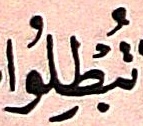 تُبْطِلُوا